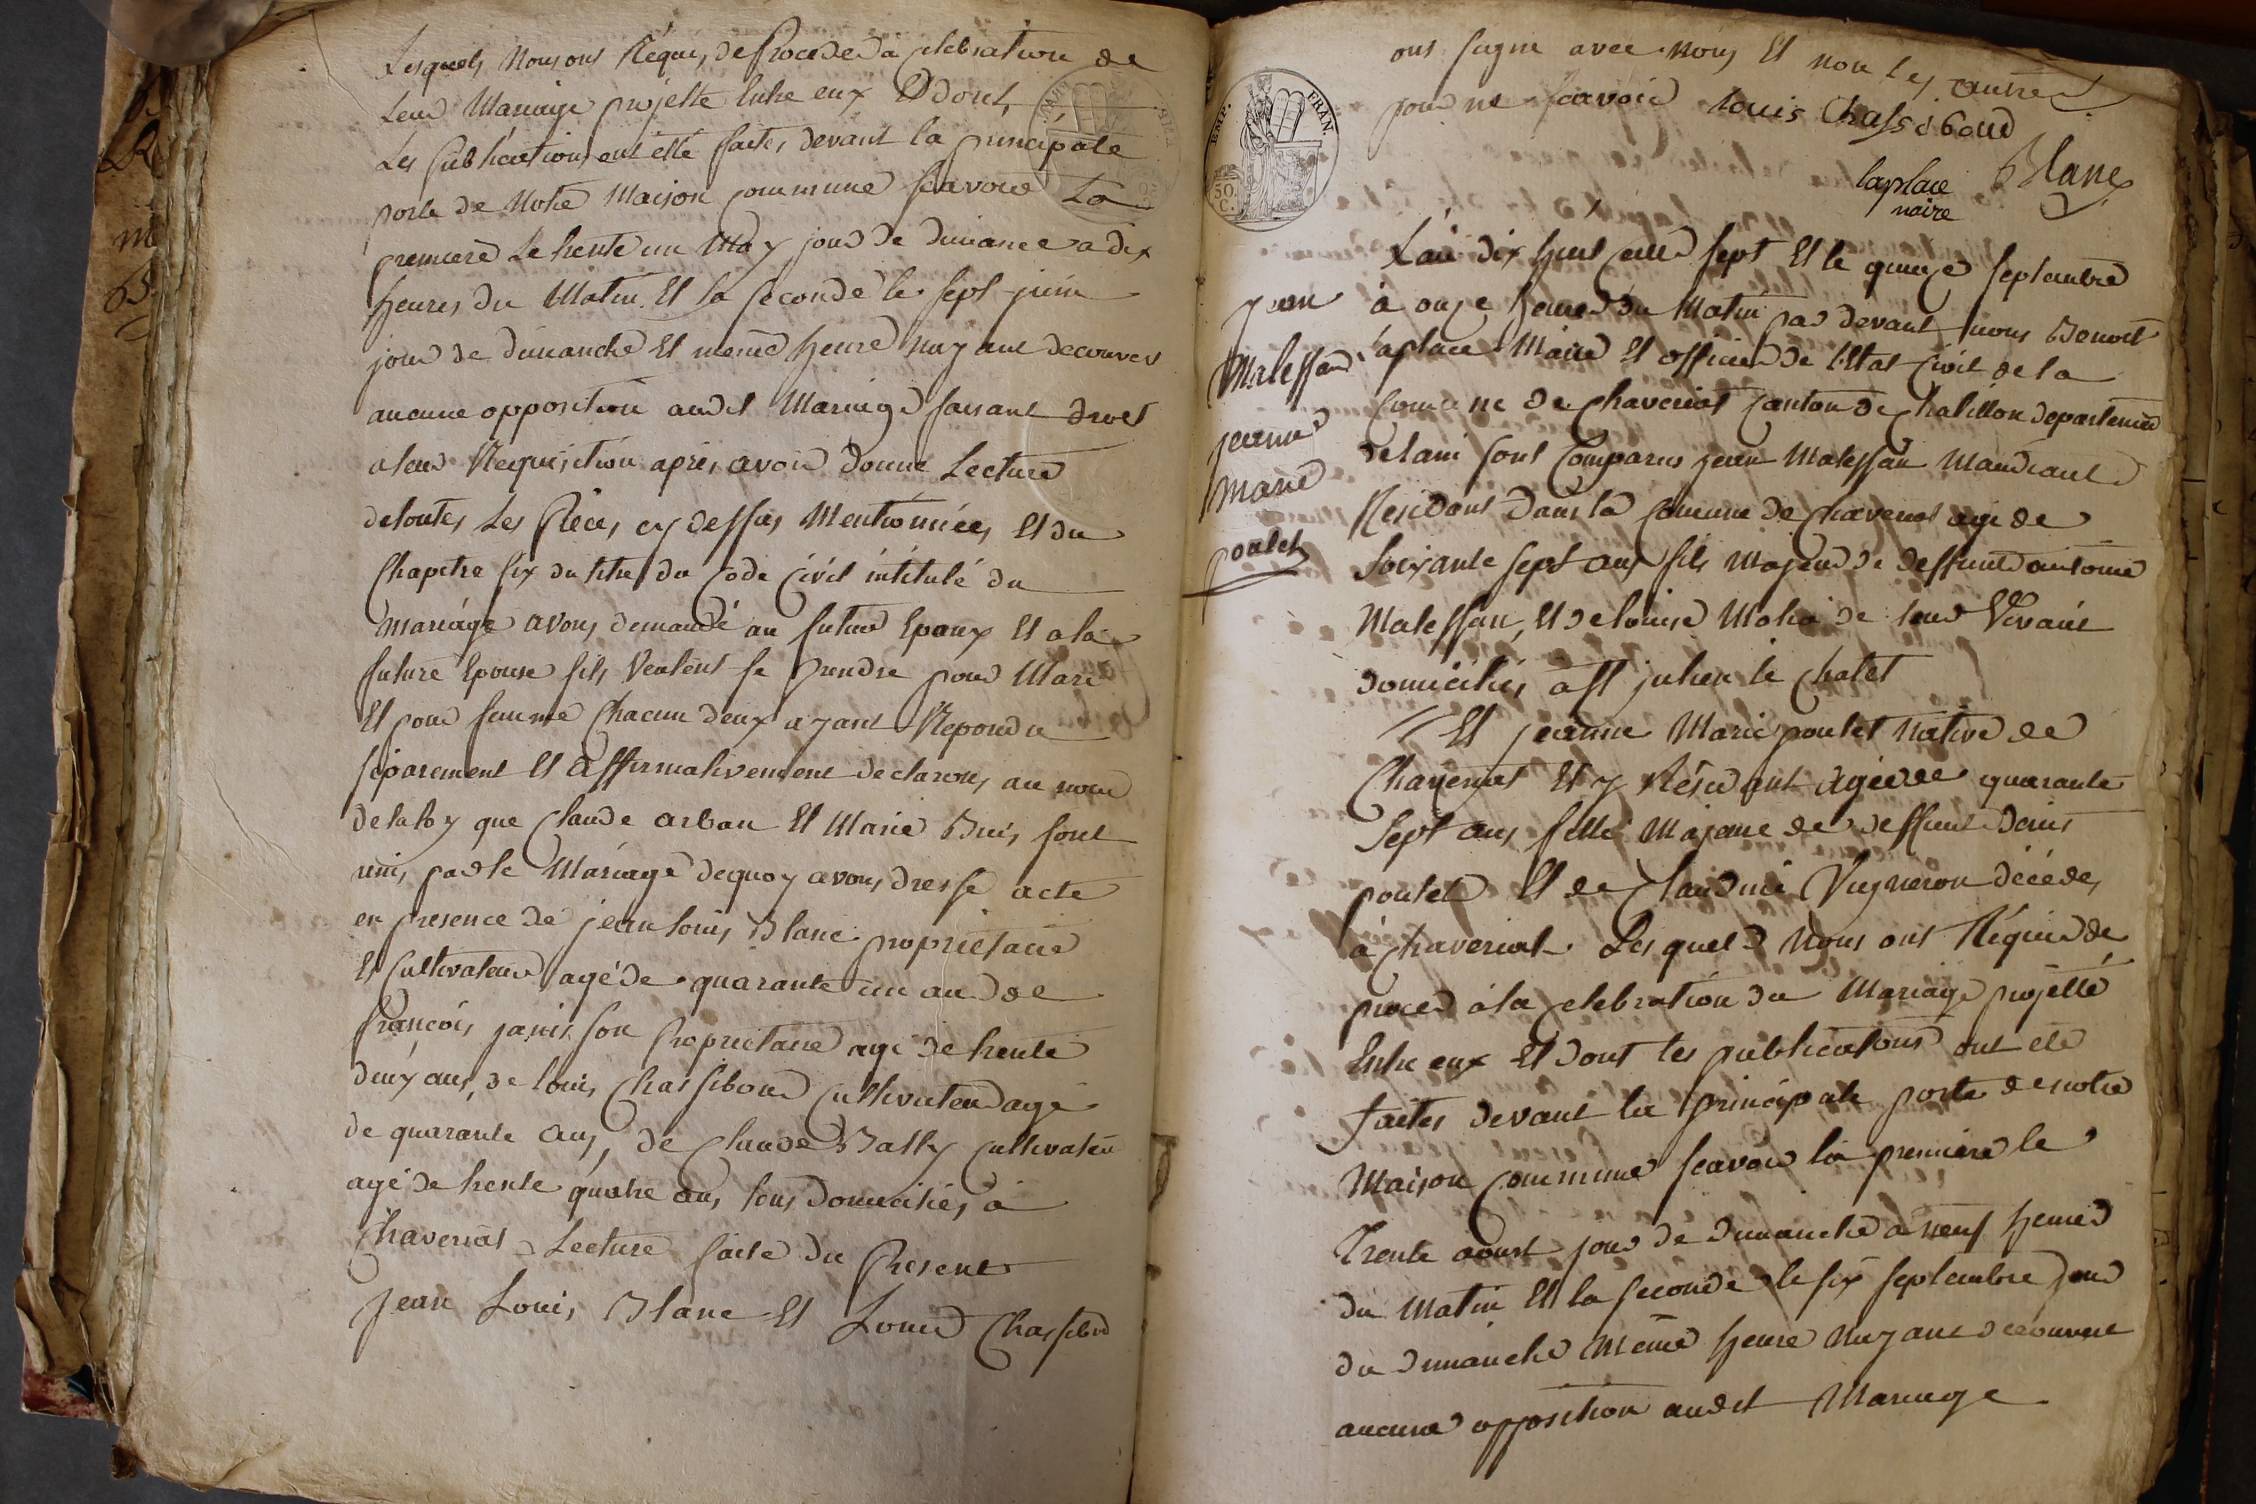 Lesquels Nous ont Réquis de Proceder à Celebration de
Leur Mariage projetté Entre eux Et dont
Les Publications ont été faites devant la principale
porte de Notre Maison Commune scavoir La
premiere Le trente un May jour de dimance a dix
heures du Matin Et la seconde le sept juin
jour de dimanche Et même heure N'ayant decouver
aucune opposition audit Mariage faisant droit
a leur Requisition après avoir donné Lecture
de toutes Les Pièces cy dessus Mentionnées Et du
Chapitre six du titre du Code Civil intitulé du
mariage avons demandé au futur Epoux Et a la
future Epouse s'ils Veulent se prendre pour Mari
Et pour femme Chacun deux ayant Repondu
séparement Et affirmativement declarons au nom
de la loy que Claude arban Et Marie Buis sont
unis par le Mariage de quoy avons dressé acte
en presence de jean Louis Blanc proprietaire
Et Cultivateur agé de quarante un an de
françois janisson Proprietaire agé de trente
deux ans, de louis Chassibout Cultivateur agé
de quarante ans, de Claude Bally Cultivateur
agé de trente quatre ans tous domiciliés à
Chaveriat Lecture faite du Present
jean Louis Blanc Et Louis Chassibout
ont signé avec Nous Et non les autres
pour ne scavoir louis Chassiboud
laplace Blanc
maire
EMP. FRAN.
50. C.
L'an dix huit cent sept Et le quinze septembre
à onze heures du Matin par devant nous Benoit
Laplace Maire Et officier de l'Etat Civil de la
Commune de Chaveriat Canton de Chatillon departement
de lain sont Comparus jean Malessan Mandiant
Residant dans la Commune de Chaveriat agé de
soixante sept ans fils Majeur de deffunt antoine
Malessan, Et de louise Molia de leur Vivant
domiciliés à st julien le Chatet
Jean
Malessan
jeanne
Marie
poulet
Et jeanne Marie poulet Native de
Chaveriat Et y Résidant agée de quarante
sept ans fille Majeure de deffunt Denis
poulet Et de Claudine Vugneron décédés
à Chaveriat. Lesquels Nous ont Réquis de
proced à la Celebration du Mariage projetté
Entre eux Et dont les publications ont été
faites devant la principale porte de notre
Maison Commune scavoir la premiere le
Trente aoust jour de dimanche à neuf heures
du Matin Et la seconde le six septembre jour
du dimanche Même heure N'ayant decouvert
aucune opposition audit Mariage